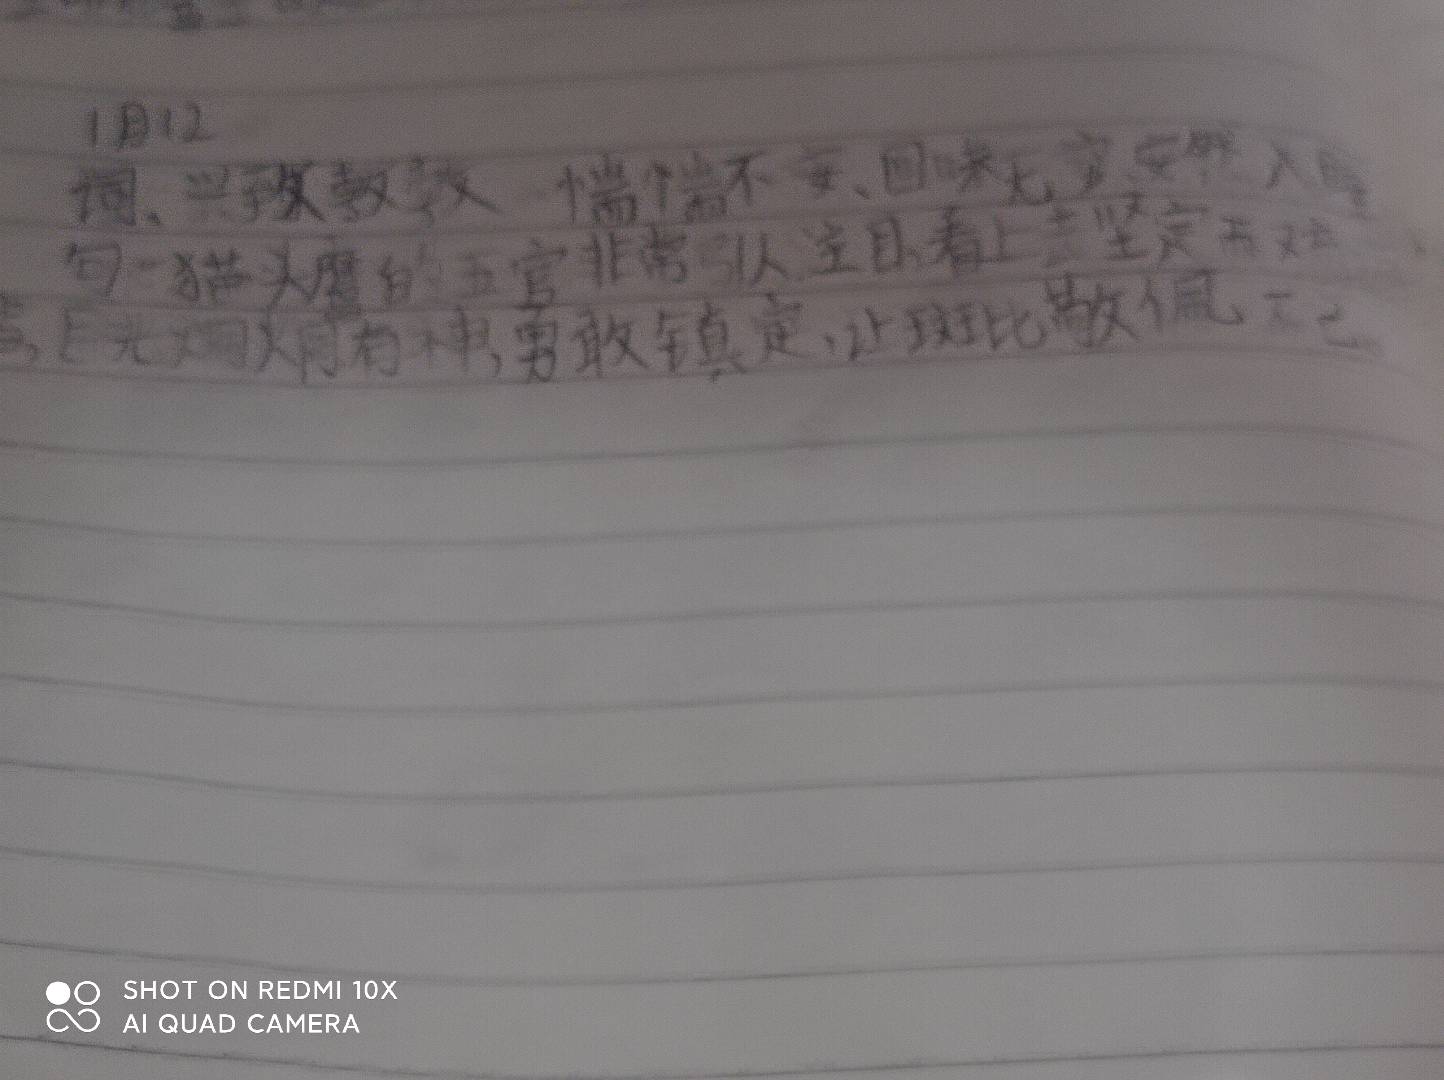 1月12
词、兴致敦敦 惴惴不安、回味无穷、安然入睡
句一猫头鹰的五官非常引人注目、看上去坚定而
目光炯炯有神,勇敢镇定,让斑比敬佩不已
SHOT ON REDMI 10X
AI QUAD CAMERA